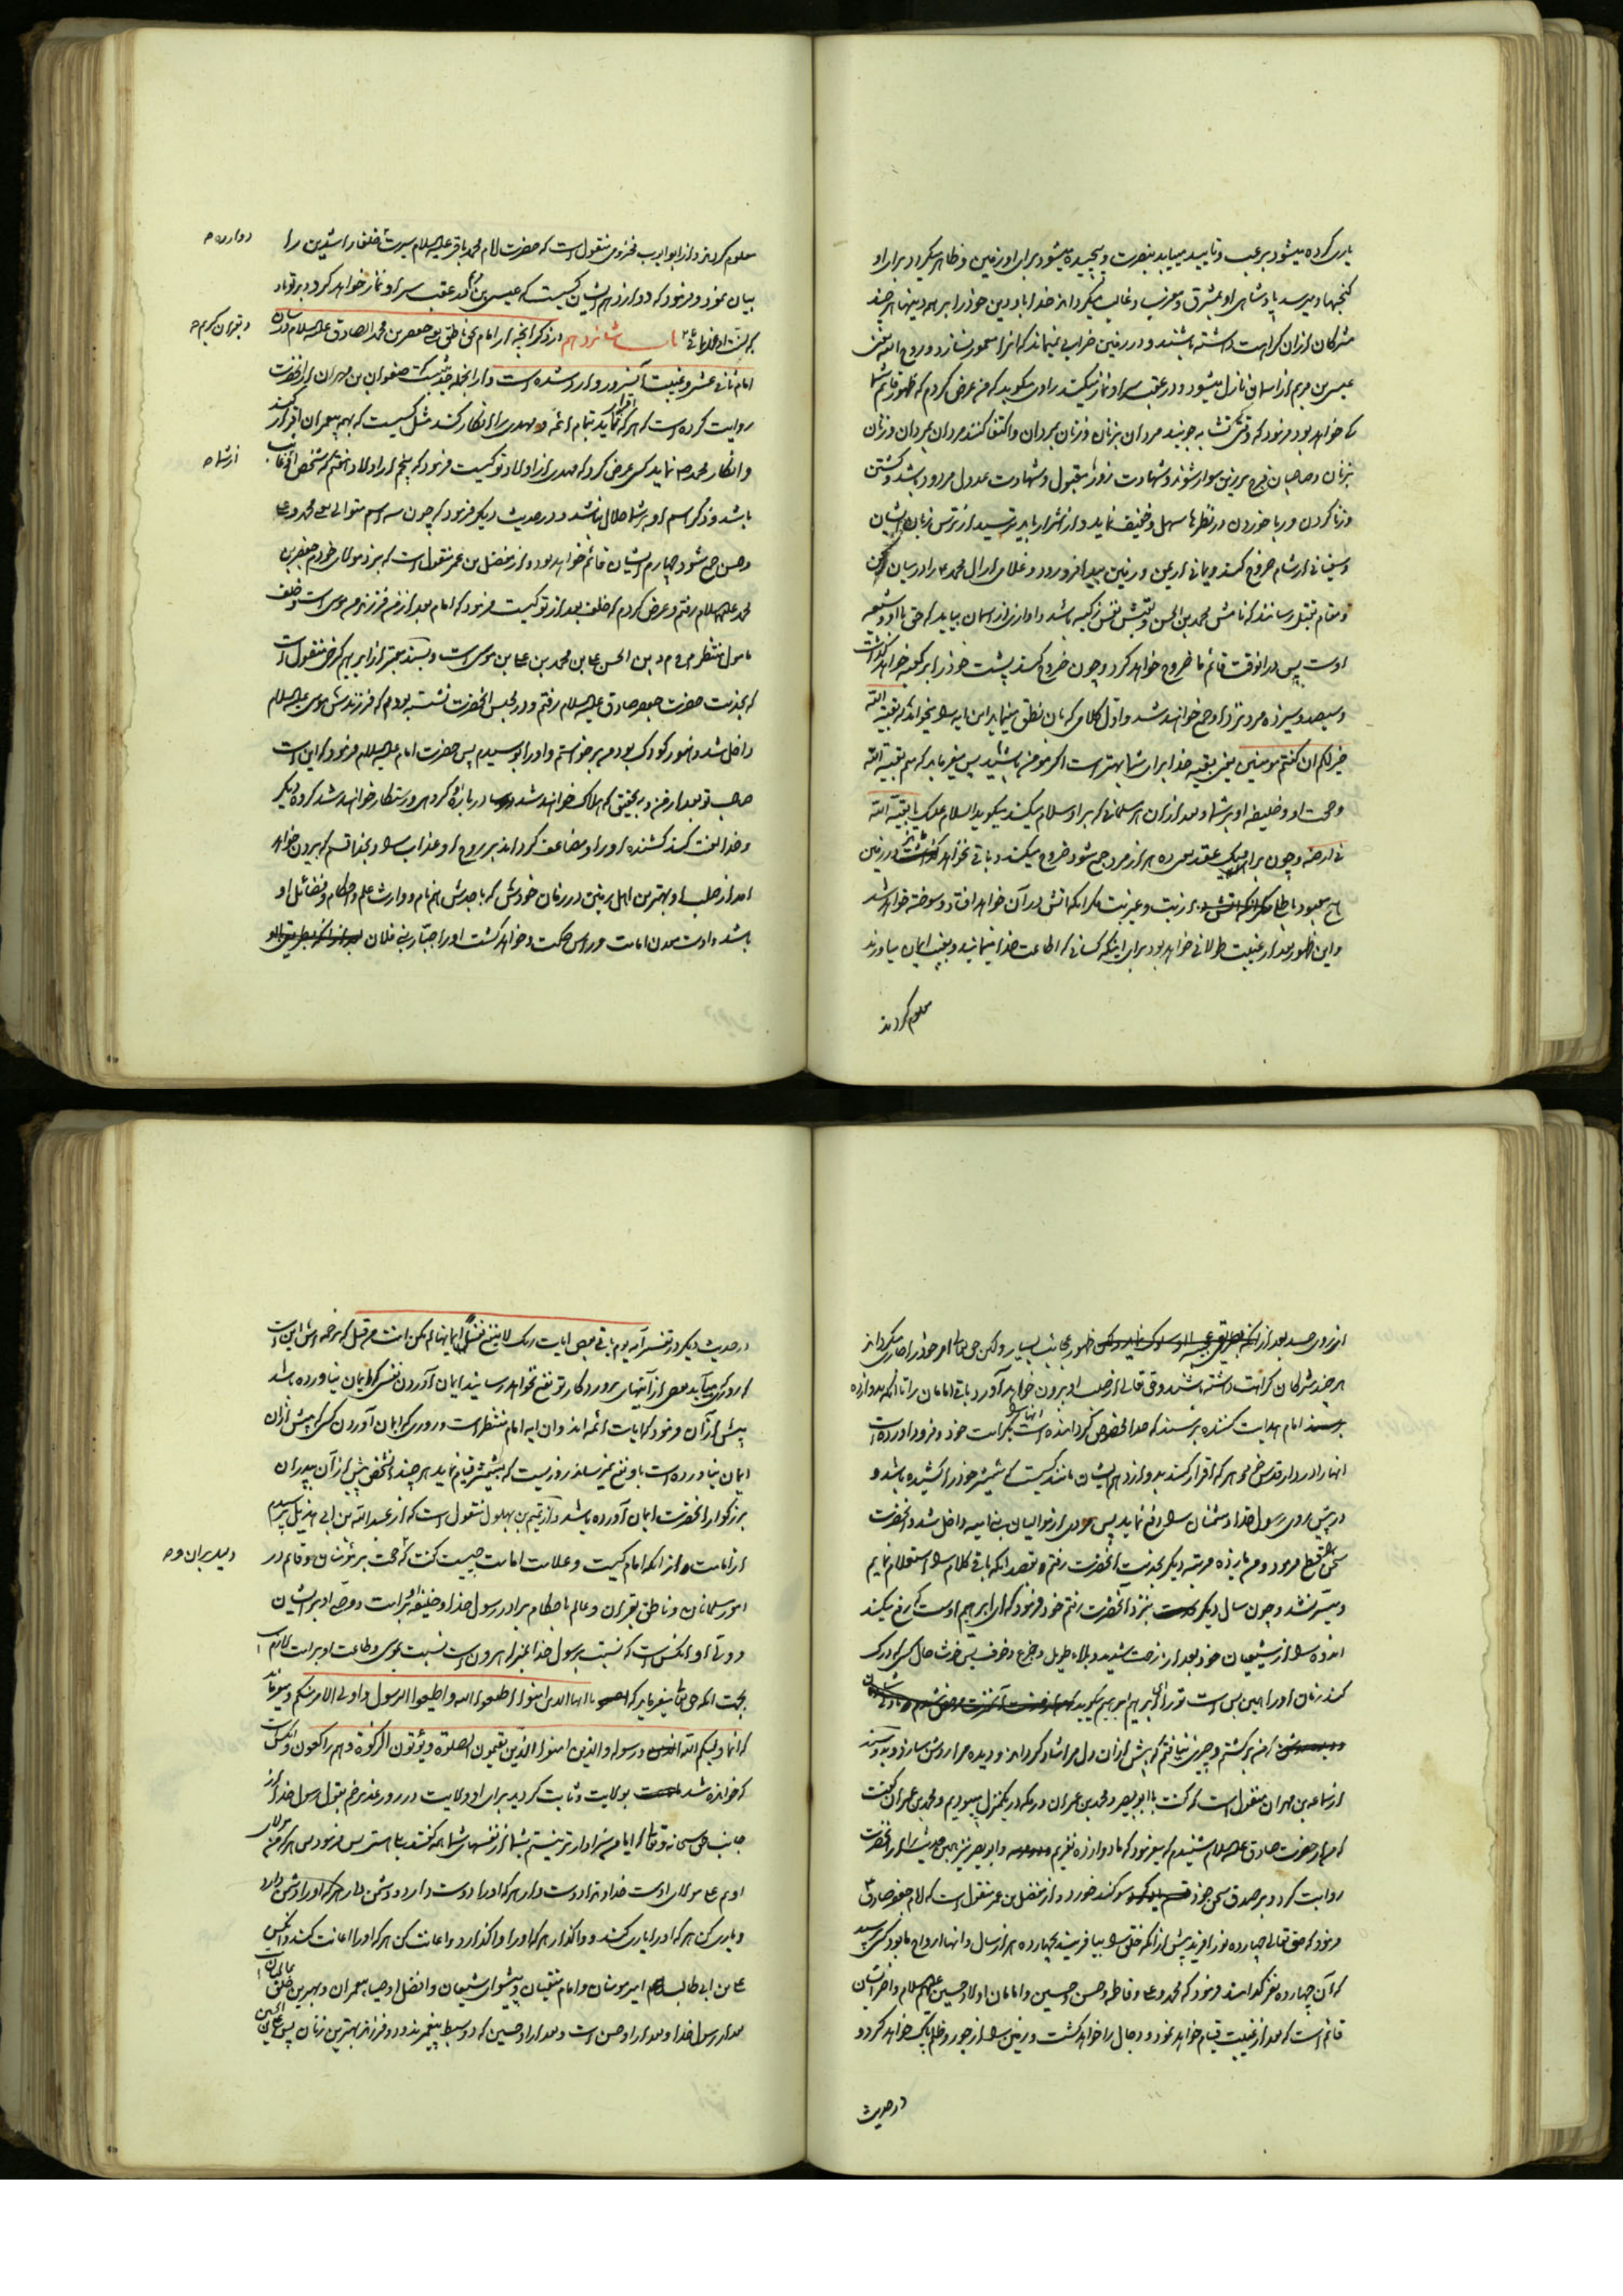 یاری کرده میشود برعب و تایید مییابد بنصرت و پیچیده میشود برای او زمین و ظاهر میگردد برای او
گنجها و میرسد پادشاهی او بمشرق و مغرب و غالب میگرداند خدا باو دین خود را بر همه دینها هر چند
مشرکان از آن کراهت داشته باشند و در زمین خرابی نمیماند که آنرا معمور نسازد و روح الله یعنی
عیسی بن مریم از آسمان نازل میشود و در عقب سر او نماز میکند راوی میگوید که من عرض کردم که ظهور قائم شما
کی خواهد بود فرمود که وقتی که تشابه جویند مردان بزنان و زنان بمردان و اکتفا کنند مردان بمردان و زنان
بزنان و صاحبان فروج بر زین سوار شوند و شهادت زور مقبول و شهادت عدول مردود باشد و کشتن
و زنا کردن و ربا خوردن در نظرها سهل و خفیف نماید و از اشرار باید ترسید از ترس زبان ایشان
و سفیانی از شام خروج کند و یمانی از یمن و زمین بیدا فرو رود و غلامی از آل محمد را در میان رکن
و مقام بقتل رسانند که نامش محمد بن الحسن و لقبش نفس زکیه باشد و آوازی از آسمان بیاید که حق با او و شیعه
اوست پس در آنوقت قائم ما خروج خواهد کرد و چون خروج کند پشت خود را بر کعبه خواهد گذاشت
و سیصد و سیزده مرد نزد او جمع خواهند شد و اول کلامی که بآن نطق مینماید این ایه را میخواند که بقیة الله
خیر لکم ان کنتم مومنین یعنی بقیه خدا برای شما بهتر است اگر مومن باشید پس میفرماید که منم بقیة الله
و حجت او و خلیفه او بر شما و بعد از آن هر سلمانی که بر او سلام میکند میگوید السلام علیک یا بقیة الله
فی ارضه و چون برای او یک عقد که ده هزار مرد جمع شود خروج میکند و باقی نخواهد در زمین
هیچ معبود باطلی از بت و غیر بت مگر انکه اتش در آن خواهد افتاد و سوخته خواهد شد
و این ظهور بعد از غیبت طولانی خواهد بود برای اینکه کسانی که اطاعت خدا مینمایند و بغیب ایمان میاورند
معلوم کردند
معلوم کردند و از ابو ایوب مخزومی منقول است که حضرت امام محمد باقر علیه السلام سیرت خلفاء راشدین را
بیان نمود و فرمود که دوازدهم ایشان کسیست که عیسی بن مریم در عقب سر او نماز خواهد کرد و بر تو باد
باب شانزدهم در ذکر انچه از امام بحق ناطق جعفر بن محمد الصادق علیه السلام در شان
امام ثانی عشر و غیبت آنسرور وارد شده است و از انجمله چنانست که صفوان بن مهران از انحضرت
روایت کرده است که هر که اقرار نماید بتمام ائمه و مهدی را انکار کند مثل کسیست که بهمه پیغمبران اقرار کند
و انکار محمد ص نماید کسی عرض کرد که مهدی از اولاد تو کیست فرمود که پنجم از اولاد هفتم که شخص او غایب
باشد و ذکر اسم او بر شما حلال نباشد و در حدیث دیگر فرمود که چون سه اسم متوالی یعنی محمد و علی
و حسن جمع شود چهارم ایشان قائم خواهد بود و از مفضل بن عمر منقول است که بنزد مولای خود جعفر بن
محمد علیهما السلام رفتم و عرض کردم که خلف بعد از تو کیست فرمود که امام بعد از من فرزند من موسی است و خلف
مامول منتظر م ح م د بن الحسن علی بن محمد بن علی بن موسی است و بسند معتبر از ابراهیم کرخی منقول است
که بخدمت حضرت جعفر صادق علیه السلام رفتم و در مجلس انحضرت نشسته بودم که فرزندش موسی علیه السلام
داخل شد و هنوز کودک بود من برخواستم و او را بوسیدم پس حضرت امام علیه السلام فرمود که این است
صاحب تو بعد از من و بتحقیق که هلاک خواهند شد در باره او گروهی و رستگار خواهند شد گروه دیگر
و خدا لعنت کند کشنده او را و مضاعف گرداند بر روح او عذاب را و بخدا قسم که بیرون خواهد
امد از صلب او بهترین اهل زمین در زمان خودش که با جدش هم نام و وارث علم و احکام و فضائل او
باشد و اوست معدن امامت و راس حکمت و خواهد کشت او را جبار بنی فلان
دوازده
و بقران کریم
از شما
از روی حسد بعد از ظهور عجایب بسیار و لکن حق تعالی امر خود را جاری میگرداند
هر چند مشرکان کراهت داشته باشند و حق تعالی از صلب او بیرون خواهد آورد باقی امامان را تا انکه بدوازده
امام هدایت کننده برسند که خدا مخصوص گردانیده است انها را بکرامت خود و فرود آورده است
انها را در دار قدس خود هر که اقرار کند بدوازدهم ایشان مانند کسیست که شمشیر خود را کشیده باشد و
در پیش روی رسول خدا دشمنان را دفع نماید پس مردی از موالیان بنی امیه داخل شد و انحضرت
سخن را قطع فرمود و من یازده مرتبه دیگر بخدمت انحضرت رفتم بقصد انکه باقی کلام را استعلام نمایم
و میسر نشد و چون سال دیگر بنزد آنحضرت رفتم خود فرمود که ای ابراهیم اوست که رفع میکند
اندوه را از شیعیان خود بعد از زحمت شدید و بلاء طویل و جزع و خوف پس خوشا حال کسی که درک
کند زمان او را همین بس است تو را ای ابراهیم ابراهیم میگوید که
که من برگشتم و چیزی نیافتم که بیش از آن دل مرا شاد گرداند و دیده مرا روشن سازد و بدو سند
از سماعه بن مهران منقول است که گفت با ابو بصیر و محمد بن عمران در مکه در یکمنزل میبودیم و محمد بن عمران گفت
که من از حضرت صادق علیه السلام شنیدم که میفرمود که ما دوازده نفریم و ابو بصیر نیز همین حدیث را از انحضرت
روایت کرد و بر صدق سخن خود سوگند خورد و از مفضل بن عمر منقول است که امام جعفر صادق
فرمود که حق تعالی چهارده نور افرید پیش از انکه خلق را بیافریند بچهارده هزار سال و انها ارواح ما بود کسی پرسید
که آن چهارده نفر کدامند فرمود که محمد و علی و فاطمه و حسن و حسین و امامان اولاد حسین علیهم السلام و اخر ایشان
قائم است که بعد از غیبت قیام خواهد نمود و دجال را خواهد کشت و زمین را از جور و ظلم پاک خواهد کرد و
در حدیث
در حدیث دیگر در تفسیر آیه یوم یاتی بعض ایات ربک لا ینفع نفسا ایمانها لم تکن امنت من قبل که ترجمه اش این است
که روزی که میآید بعضی از آیتهای پروردگار تو نفع نخواهد رسانید ایمان آوردن نفسی که ایمان نیاورده باشد
پیش از آن فرمود که ایات ائمه اند و ان ایه امام منتظر است و روزی که ایمان آوردن کسی که پیش از ان
ایمان نیاورده است باو نفع نمیرساند روزیست که بشمشیر قیام نماید هر چند انشخص پیش از آن بپدران
بزرگوار انحضرت ایمان آورده باشد و از تمیم بن بهلول منقول است که از عبد الله بن ابی هذیل پرسیدم
از امامت و از انکه امام کیست و علامت امامت چیست گفت که حجت بر مؤمنان و قائم در
امور مسلمانان و ناطق بقران و عالم باحکام برادر رسول خدا و خلیفه او بر امت و وصی او بر ایشان
و ولی او انکس است که نسبت برسول خدا بمنزله هرون است نسبت بموسی و طاعت او بر امت لازم است
بجهت انکه حق تعالی میفرماید که یا ایها الذین امنوا اطیعوا الله و اطیعوا الرسول و اولی الامر منکم و میفرماید
که انما ولیکم الله و رسوله و الذین امنوا الذین یقیمون الصلوة و یؤتون الزکوة و هم راکعون و انکس است
که خوانده شد بولایت و ثابت گردید برای او ولایت در روز غدیر خم بقول رسول خدا از
جانب حق سبحانه و تعالی که ایا من سزاوارتر نیستم بشما از نفسهای شما همه گفتند بلی پس فرمود پس هر که من مولای
اویم علی مولای اوست خداوندا دوست دار هر که او را دوست دارد و دشمن دار هر که او را دشمن دارد
و یاری کن هر که او را یاری کند و واگذار هر که او را واگذارد و اعانت کن هر که او را اعانت کند و انکس
علی بن ابی طالب امیر مومنان و امام متقیان و پیشوای شیعیان و افضل اوصیاء پیغمبران و بهترین خلق عالمیان است
بعد از رسول خدا و بعد از او حسن است و بعد از او حسین که دو سبط پیغمبرند و دو فرزند بهترین زنان پس علی بن الحسین